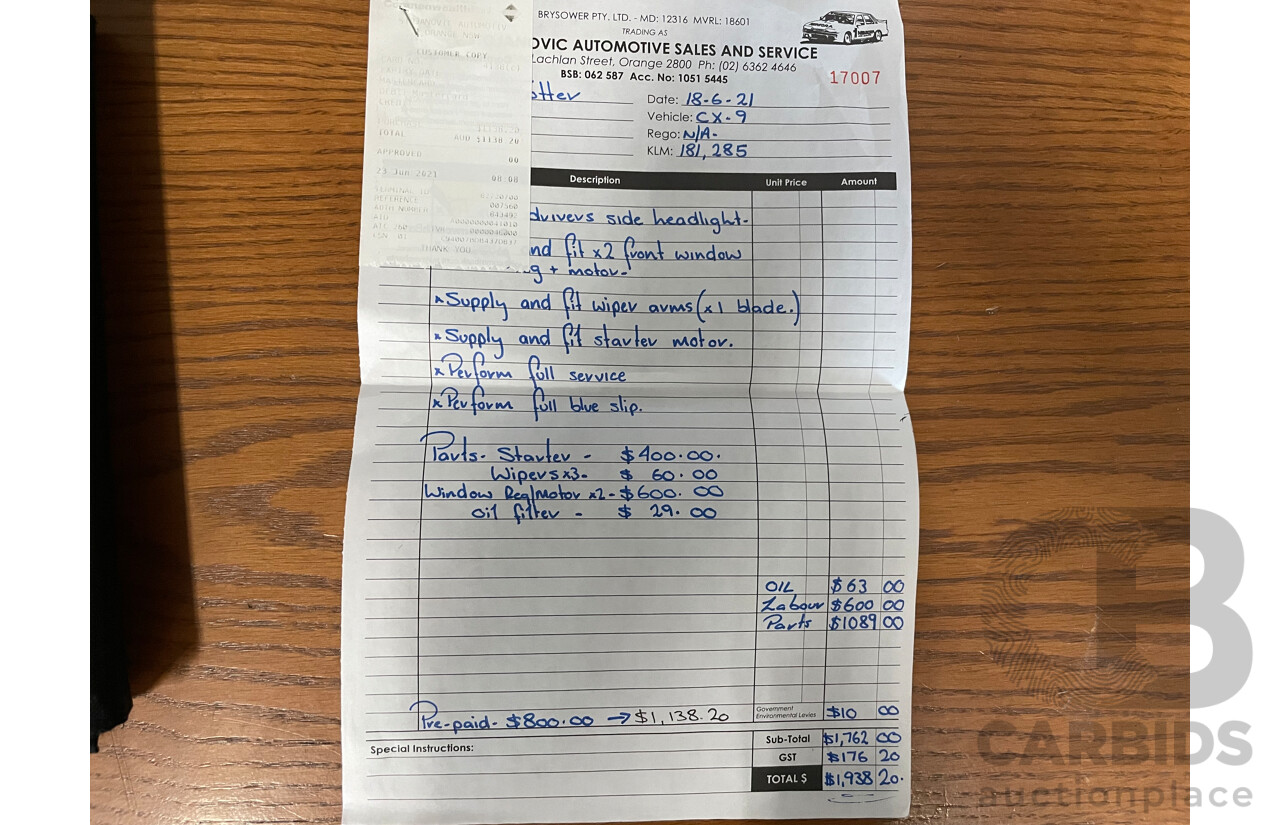 CUSTOMER COPY
TOTAL AUD $1138.20
APPROVED 00
23 Jun 2021 08:08
REFERENCE 007560
THANK YOU
BRYSOWER PTY. LTD. - MD: 12316 MVRL: 18601
TRADING AS
OVIC AUTOMOTIVE SALES AND SERVICE
Lachlan Street, Orange 2800 Ph: (02) 6362 4646
BSB: 062 587 Acc. No: 1051 5445
17007
Date: 18-6-21
Vehicle: CX-9
Rego: N/A-
KLM: 181,285
Description Unit Price Amount
drivers side headlight-
nd fit x2 front window
g + motor-
*Supply and fit wiper arms (x1 blade.)
*Supply and fit starter motor.
*Perform full service
*Perform full blue slip.
Parts- Starter - $400.00.
Wipers x3- $ 60.00
Window Reg/Motor x2 - $600.00
Oil filter - $ 29.00
OIL $63 00
Labour $600 00
Parts $1089 00
Pre-paid- $800.00 → $1,138.20
Government
Environmental Levies $10 00
Special Instructions:
Sub-Total $1,762 00
GST $176 20
TOTAL $ $1,938 20.
CARBIDS
auctionplace